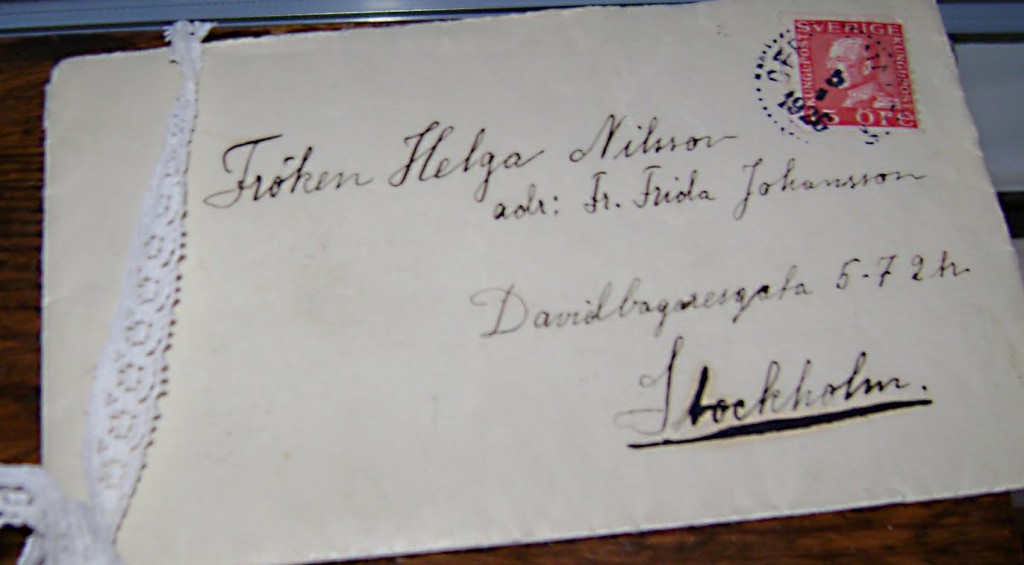 SVERIGE
ÖRE
1926
Fröken Helga Nilsson
adr: Fr. Frida Johansson
Davidbagaresgata 5-7 2 tr.
Stockholm.